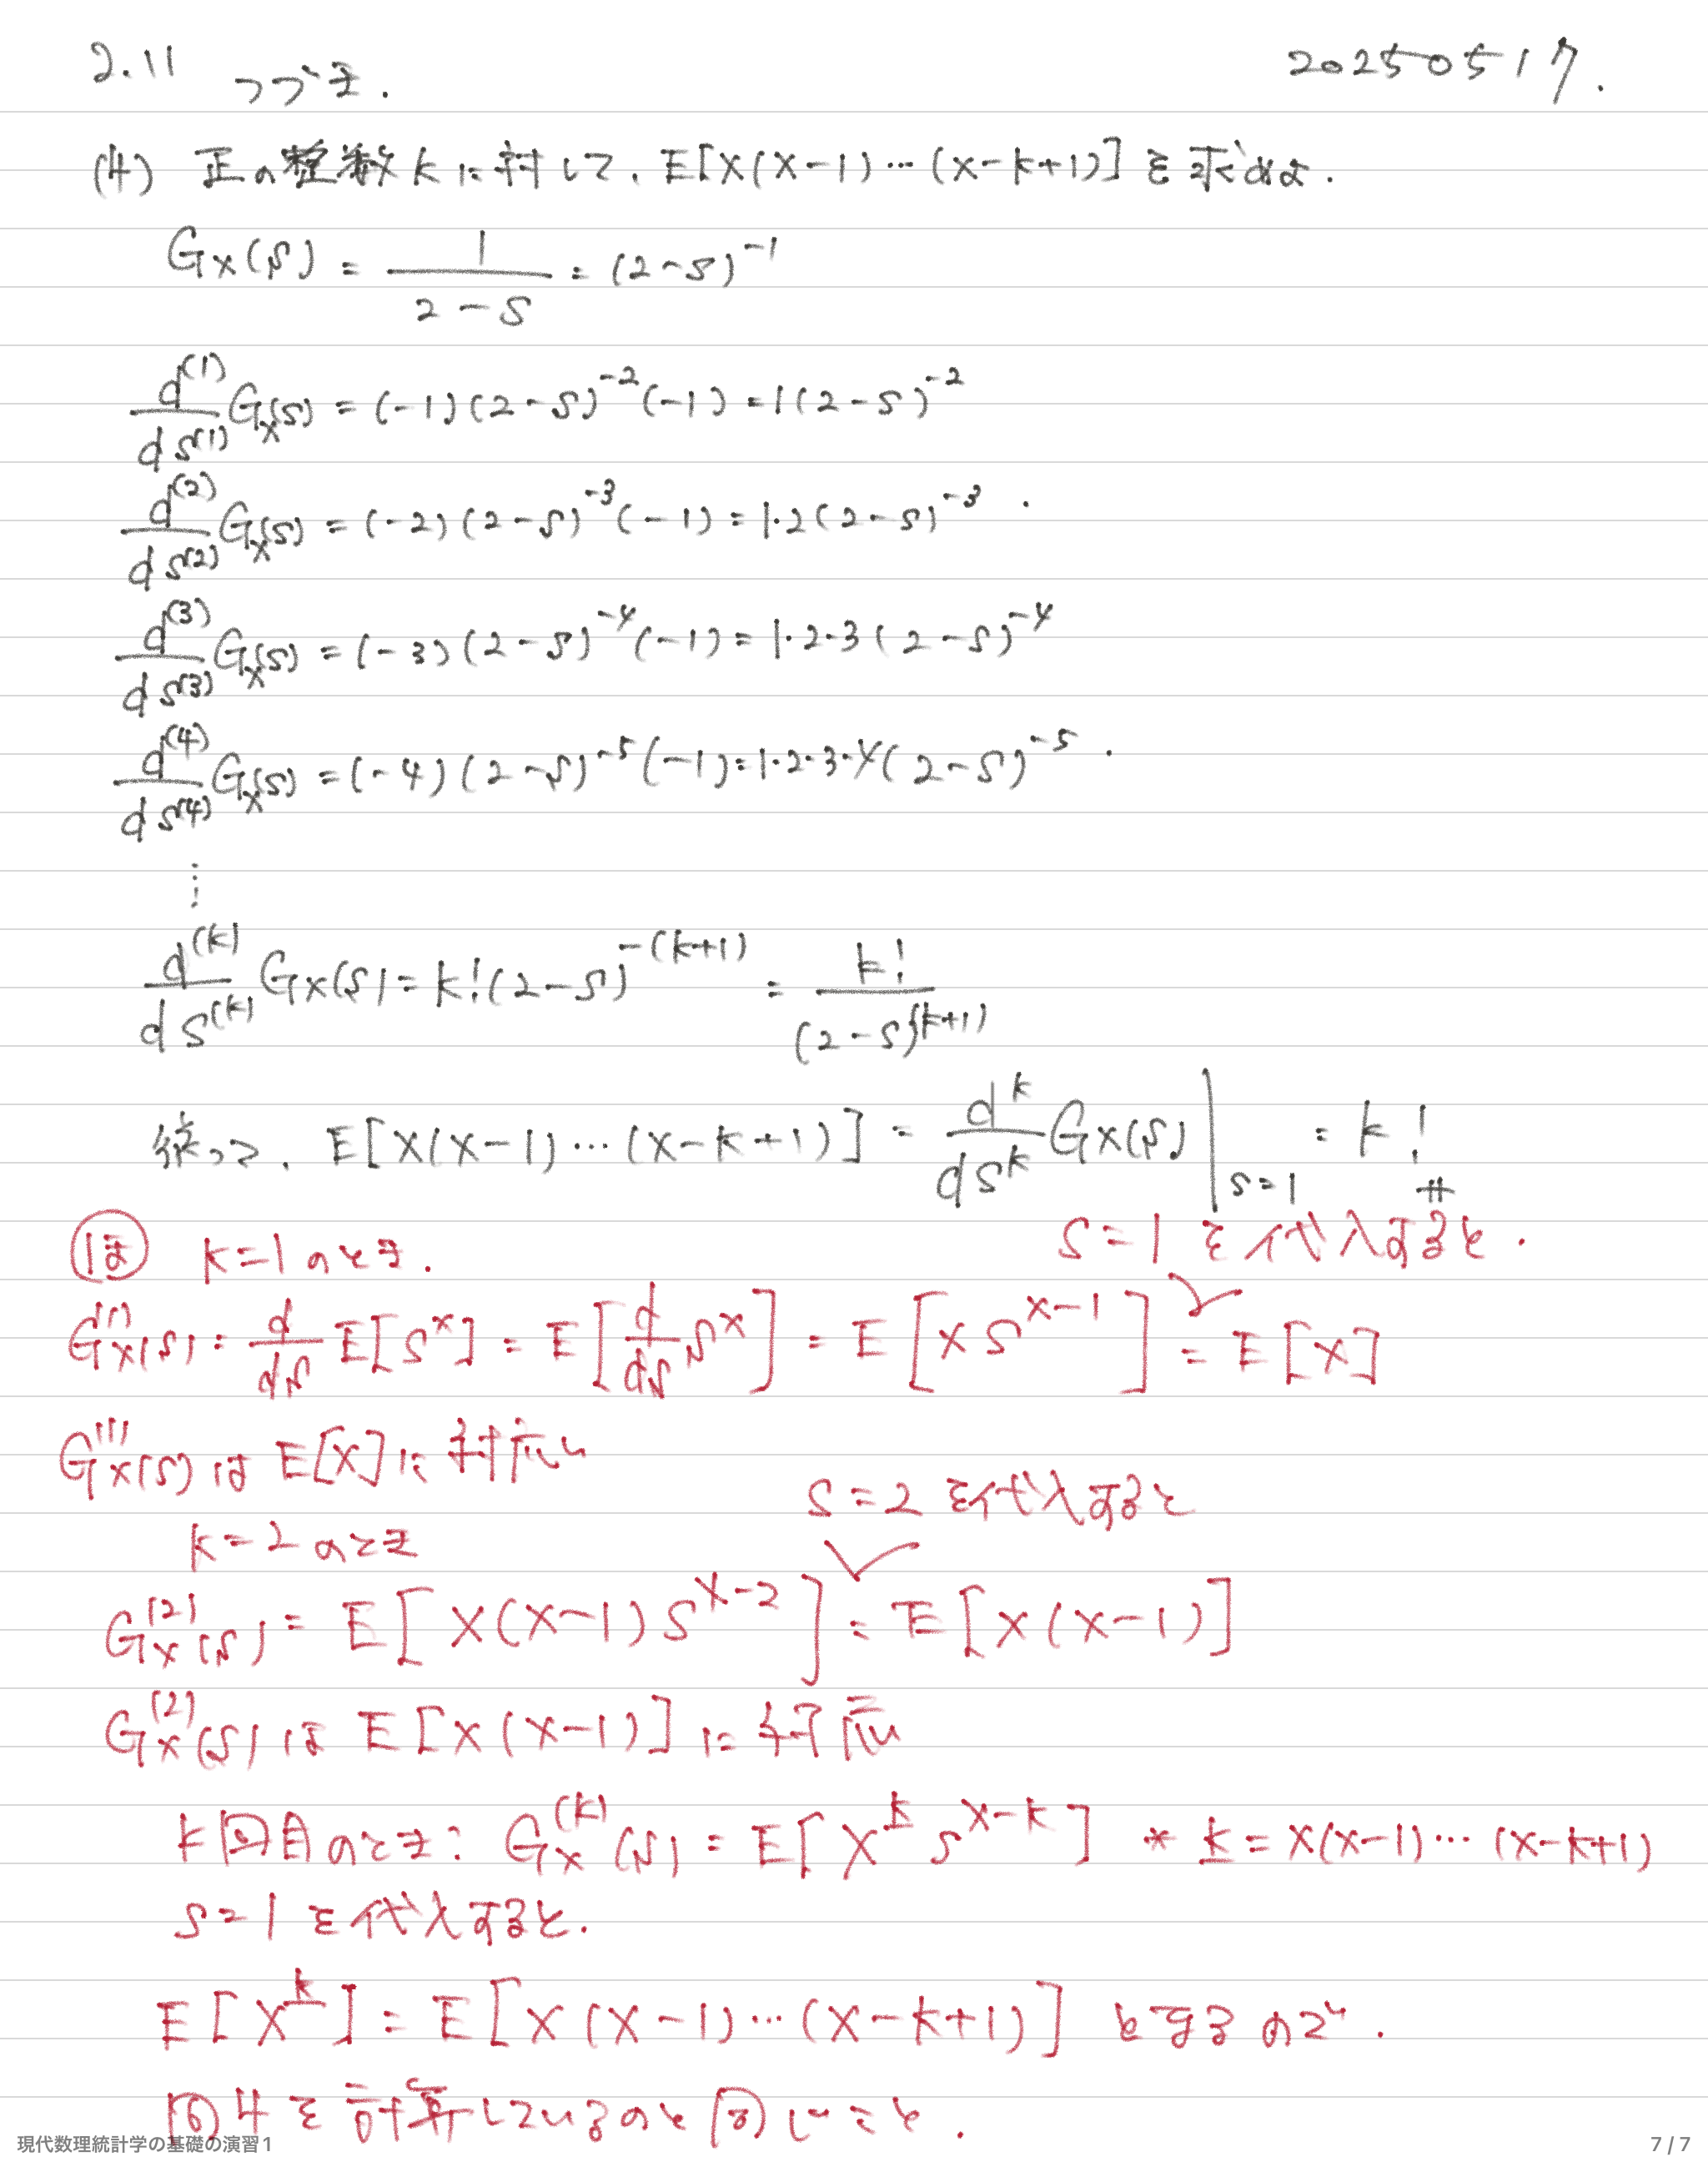 2.11 つづき. 20250517.
(4) 正の整数kに対して、E[X(X-1)…(X-k+1)]を求めよ.
Gx(s) = 1/(2-s) = (2-s)^{-1}
d^{(1)}/ds^{(1)} Gx(s) = (-1)(2-s)^{-2}(-1) = 1(2-s)^{-2}
d^{(2)}/ds^{(2)} Gx(s) = (-2)(2-s)^{-3}(-1) = 1·2(2-s)^{-3}.
d^{(3)}/ds^{(3)} Gx(s) = (-3)(2-s)^{-4}(-1) = 1·2·3(2-s)^{-4}
d^{(4)}/ds^{(4)} Gx(s) = (-4)(2-s)^{-5}(-1) = 1·2·3·4(2-s)^{-5}.
⋮
d^{(k)}/ds^{(k)} Gx(s) = k!(2-s)^{-(k+1)} = k!/(2-s)^{(k+1)}
従って、E[X(X-1)…(X-k+1)] = d^k/ds^k Gx(s)|_{s=1} = k!
ほ k=1のとき.
s=1を代入すると.
Gx^{(1)}(s) = d/ds E[s^X] = E[d/ds s^X] = E[X s^{X-1}] = E[X]
Gx^{(1)}(s)はE[X]に対応し
k=2のとき
s=2を代入すると
Gx^{(2)}(s) = E[X(X-1)s^{X-2}] = E[X(X-1)]
Gx^{(2)}(s)はE[X(X-1)]に対応
k回目のとき: Gx^{(k)}(s) = E[X^{k̲} s^{X-k}] * k̲ = X(X-1)…(X-k+1)
s=1を代入すると.
E[X^{k̲}] = E[X(X-1)…(X-k+1)]となるので.
を計算しているのと同じこと.
現代数理統計学の基礎の演習1
7 / 7